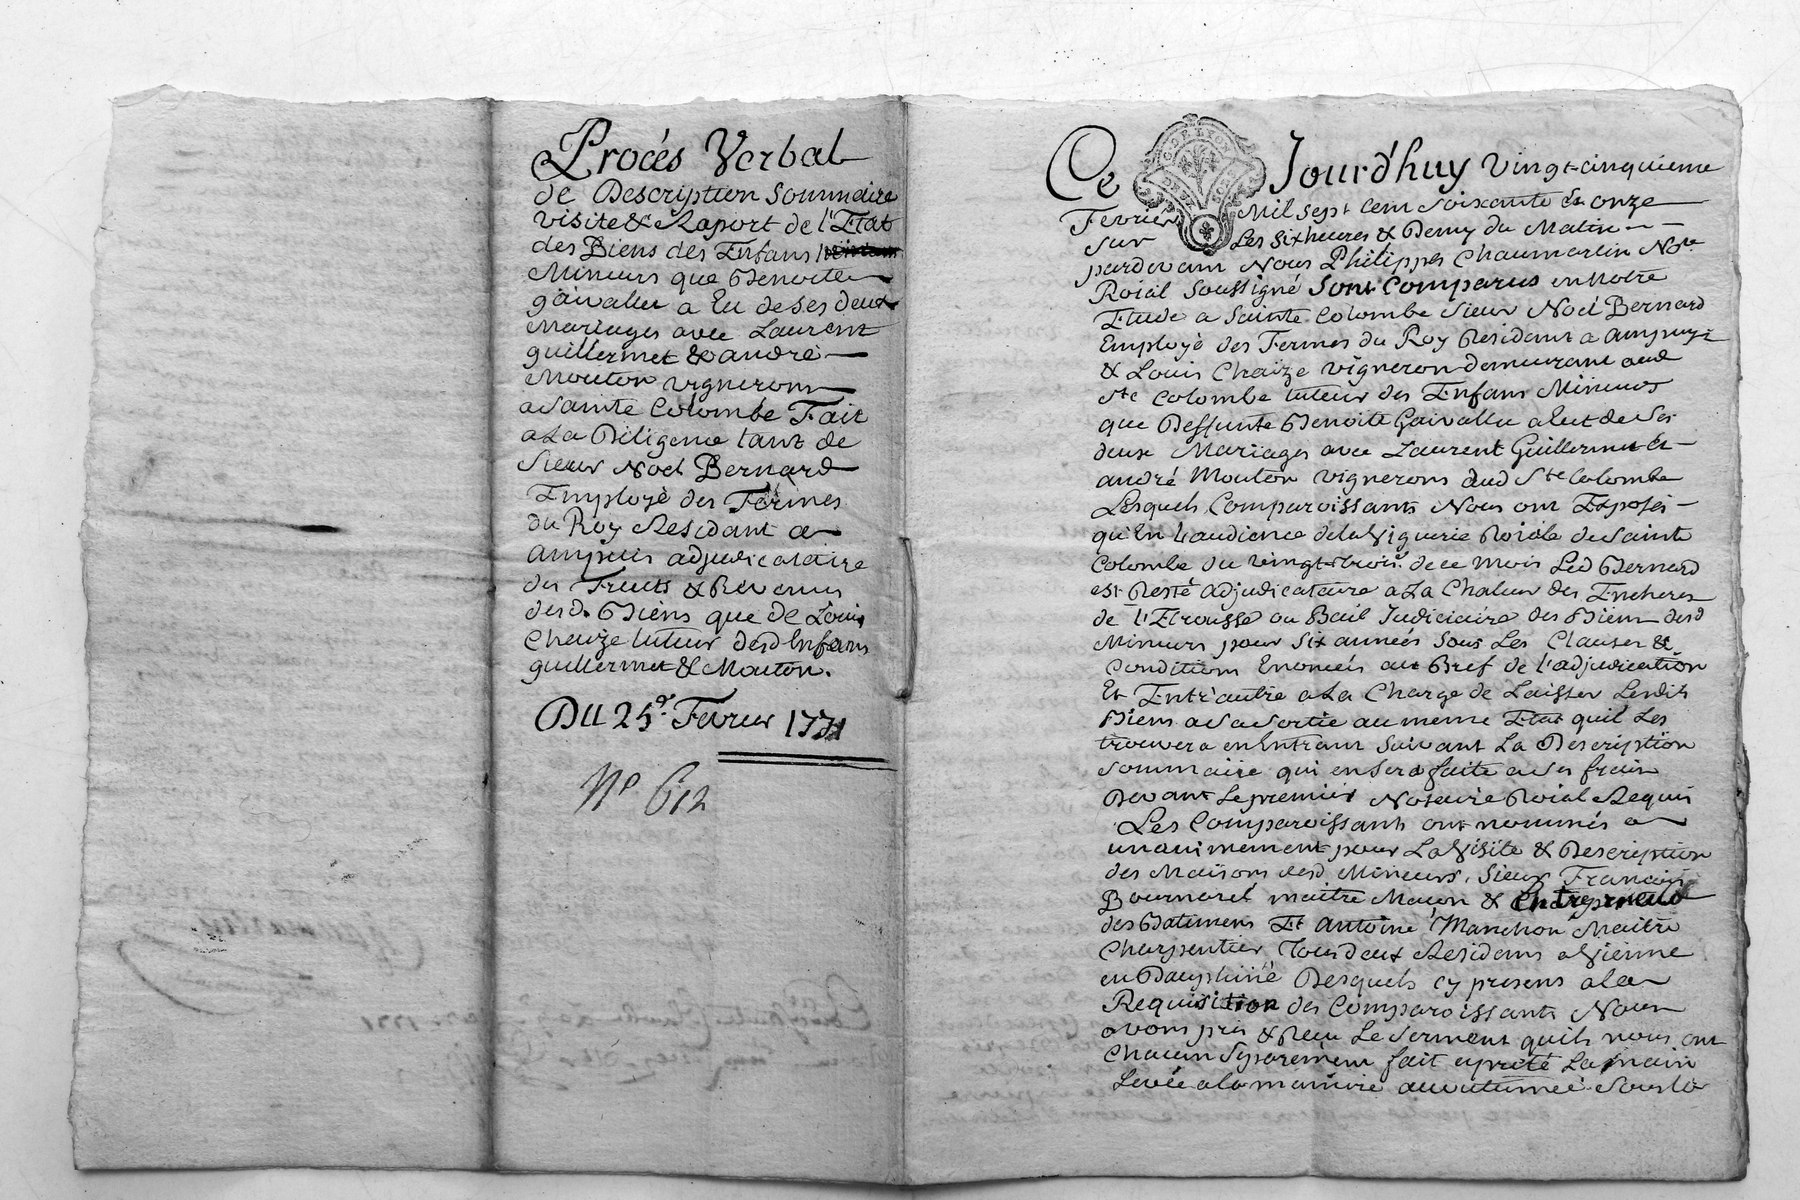 Procés Verbal
de Description Sommaire
visite & Raport de l'Etat
des Biens des Enfans
Mineurs que Benoite
gaivallu a Eu de ses deux
Mariages avec Laurent
guillermet & andré
Mouton vignerons
a Sainte Colombe Fait
a La Diligence tant de
Sieur Noel Bernard
Employé des Fermes
du Roy Residant a
ampuis adjudicataire
des Fruits & Revenus
desd. Biens que de Louis
Cheuze tuteur desd Enfans
guillermet & Mouton.
Du 25e. Fevrier 1771
No 612
Ce Jourd'huy vingt-cinquieme
G. DE LYON
Fevrier Mil sept cent soixante & onze
sur Les six heures & Demy du Matin
pardevant Nous Philippes Chaumartin Nore
Roial soussigné sont Comparus en Notre
Etude a Sainte Colombe Sieur Noel Bernard
Employé des Fermes du Roy Residant a ampuy
& Louis Chaize vigneron demeurant aud
Ste Colombe tuteur des Enfans Mineurs
que Deffunte Benoite Gaivallu a Eut de ses
deux Mariages avec Laurent Guillermet &
andré Mouton vignerons dud Ste Colombe
Lesquels Comparoissants Nous ont Exposés
qu'En L'audience de la Viguerie Roiale de Sainte
Colombe du vingt-trois. de ce Mois Led Bernard
est Resté adjudicataire a La Chaleur des Encheres
de l'Etrousse ou Bail Judiciaire des Biens desd
Mineurs pour six années sous Les Clauses &
Conditions Enoncées au Bref de l'adjudication
Et Entr'autre a La Charge de Laisser Lesdits
Biens a sa sortie au meme Etat quil Les
trouvera en Entrant suivant La Description
sommaire qui en sera faite a ses frais
Devant Le premier Notaire Roial Requis
Les Comparoissants ont nommés
unanimement pour La Visite & Description
des Maisons desd Mineurs, Sieur Francois
Bournaret maitre Macon & Entrepreneur
des Batimens Et Antoine Manchon Maitre
Charpentier Tous deux Residans a Vienne
en Dauphiné Desquels cy presens a la
Requisition des Comparoissants Nous
avons pris & Recu Le serment quils nous ont
Chacun separement fait & preté La main
Levée a la maniere accoutumée. Sous la